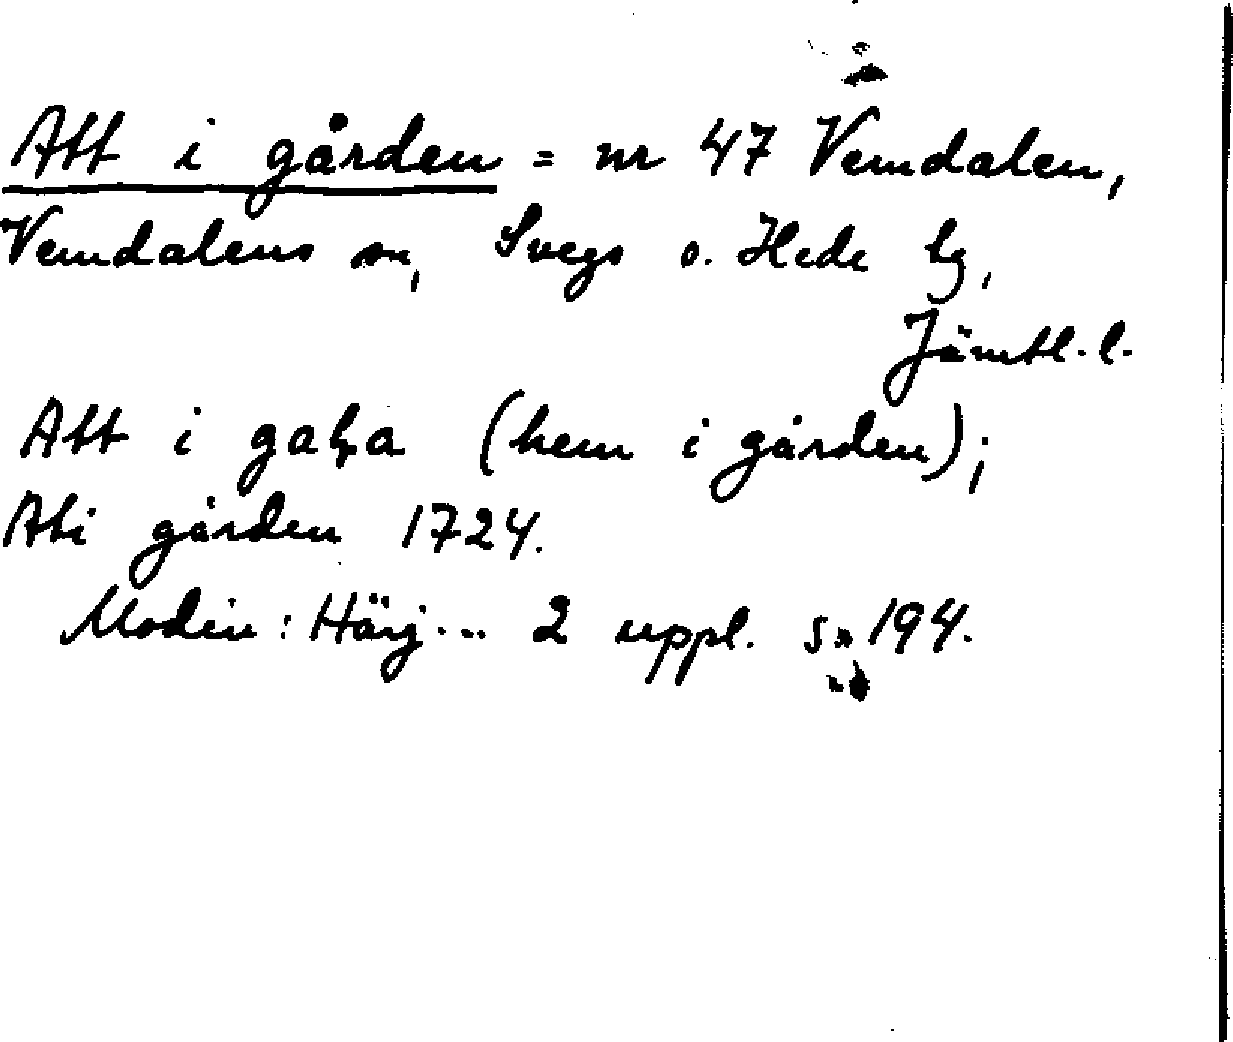 Att i gården = nr 47 Vemdalen,
Vemdalens sn, Svegs o. Hede tg,
Jämtl. l.
Att i gaļa (hem i gården);
Ati gården 1724.
Modin: Härj... 2 uppl. s. 194.